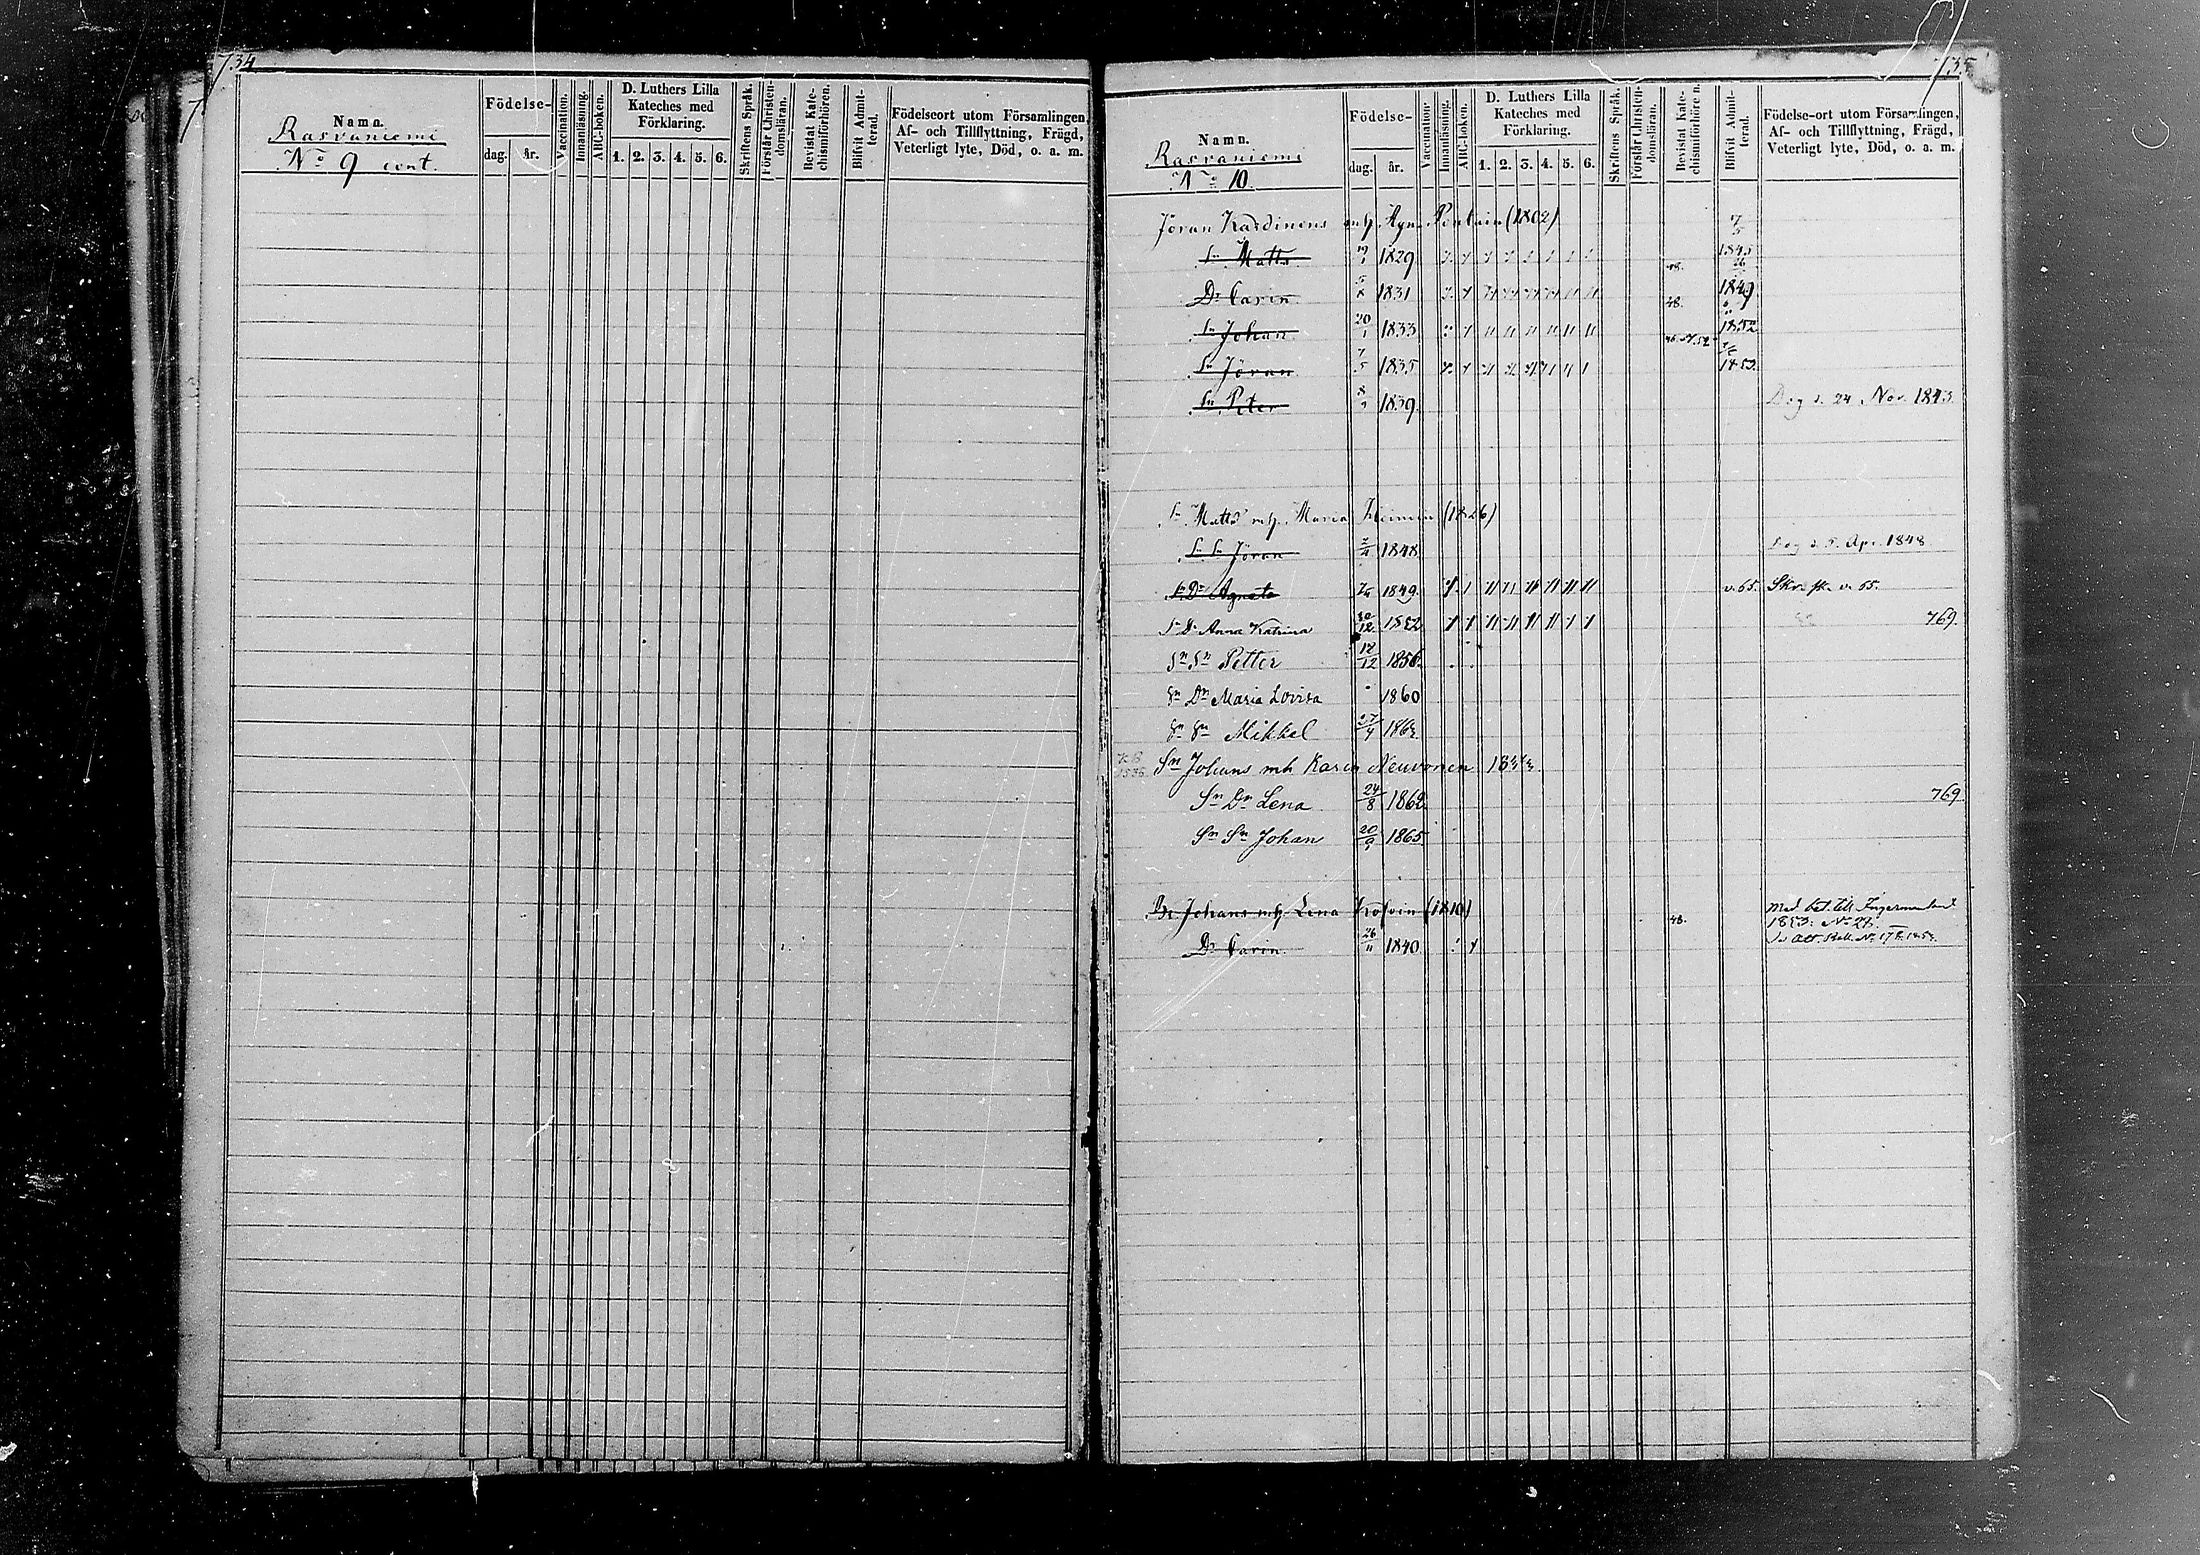 734
Namn.
Rasvaniemi
No 9 cont.
Födelse-
dag. år.
Vaccination.
Innanläsning.
ABC-boken.
D. Luthers Lilla
Kateches med
Förklaring.
1. 2. 3. 4. 5. 6.
Skriftens Språk.
Förstår Christen-
domsläran.
Bevistat Kate-
chismiförhören.
Blifvit Admit-
terad.
Födelseort utom Församlingen,
Af- och Tillflyttning, Frägd,
Veterligt lyte, Död, o. a. m.
735
Namn.
Rasvaniemi
No 10.
Födelse-
dag. år.
Vaccination
Innanläsning.
ABC-boken.
D. Luthers Lilla
Kateches med
Förklaring.
1. 2. 3. 4. 5. 6.
Skriftens Språk.
Förstår Christen-
domsläran.
Bevistat Kate-
chismiförhören.
Blifvit Admit-
terad.
Födelse-ort utom Församlingen,
Af- och Tillflyttning, Frägd,
Veterligt lyte, Död, o. a. m.
Jöran (1802)
Sn Matts 1829 1845
Dr Carin 1831 48. 1849
Sn Johan 20/1 1833 1852
Sn Jöran 7/5 1835 1853
Sn Peter 1839 Dog d. 24 Nov. 1843
Sn Matts mh. Maria (1826)
Sn Sn Jöran 1848 Dog d. 5 Apr. 1848
Sn Dr Agneta 1849 v. 65. v. 65.
Sn Dr Anna Katrina 30/12 1852 769.
Sn Sn Petter 18/12 1856
Sn Dn Maria Lovisa 1860
Sn Sn Mikkel 27/4
Sn Johans mh Karin Neuvonen
Sn Dn Lena 24/8 1862 769
Sn Sn Johan 20/9 1865
Br Johans mh. Lena (1810) 48. Med bet. till Ingermanland
1853. No 27.
Dr Carin 26/11 1840